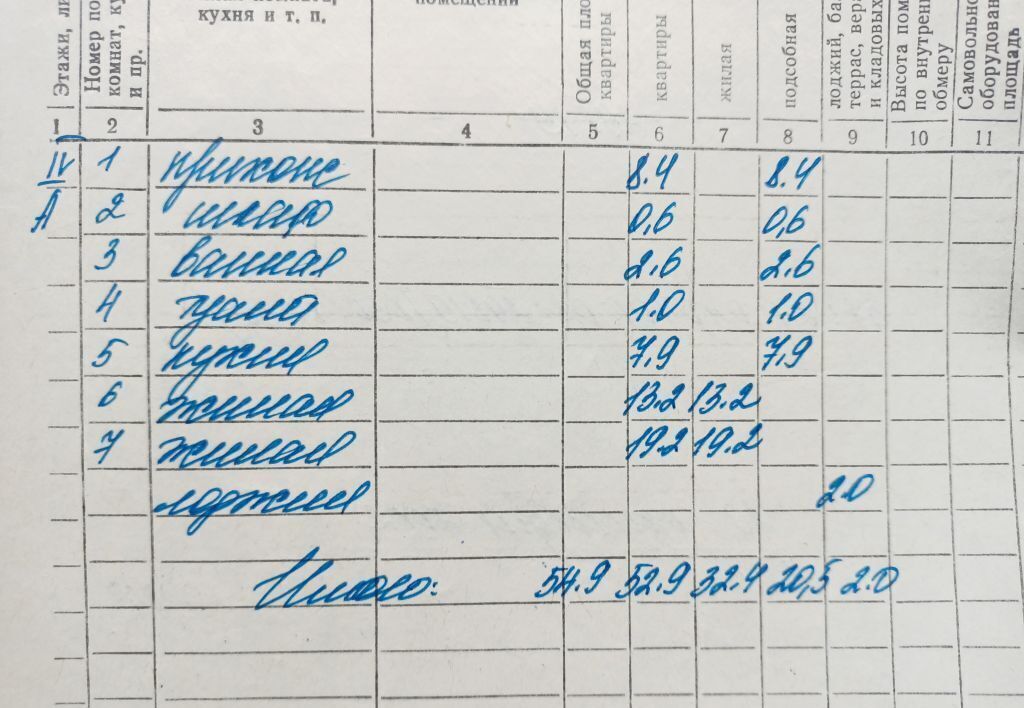 Этажи, ли
Номер по
комнат, ку
и пр.
кухня и т. п.
помещений
Общая пло
квартиры
квартиры
жилая
подсобная
лоджий, ба
террас, вера
и кладовых
Высота пом
по внутрен
обмеру
Самовольно
оборудован
площадь
1 2 3 4 5 6 7 8 9 10 11
IV 1 прихож 8.4 8.4
А 2 шкаф 0,6 0,6
3 ванная 2.6 2.6
4 туалет 1.0 1.0
5 кухня 7,9 7,9
6 жилая 13.2 13.2
7 жилая 19.2 19.2
лоджия 2.0
Итого: 54.9 52.9 32.4 20,5 2.0